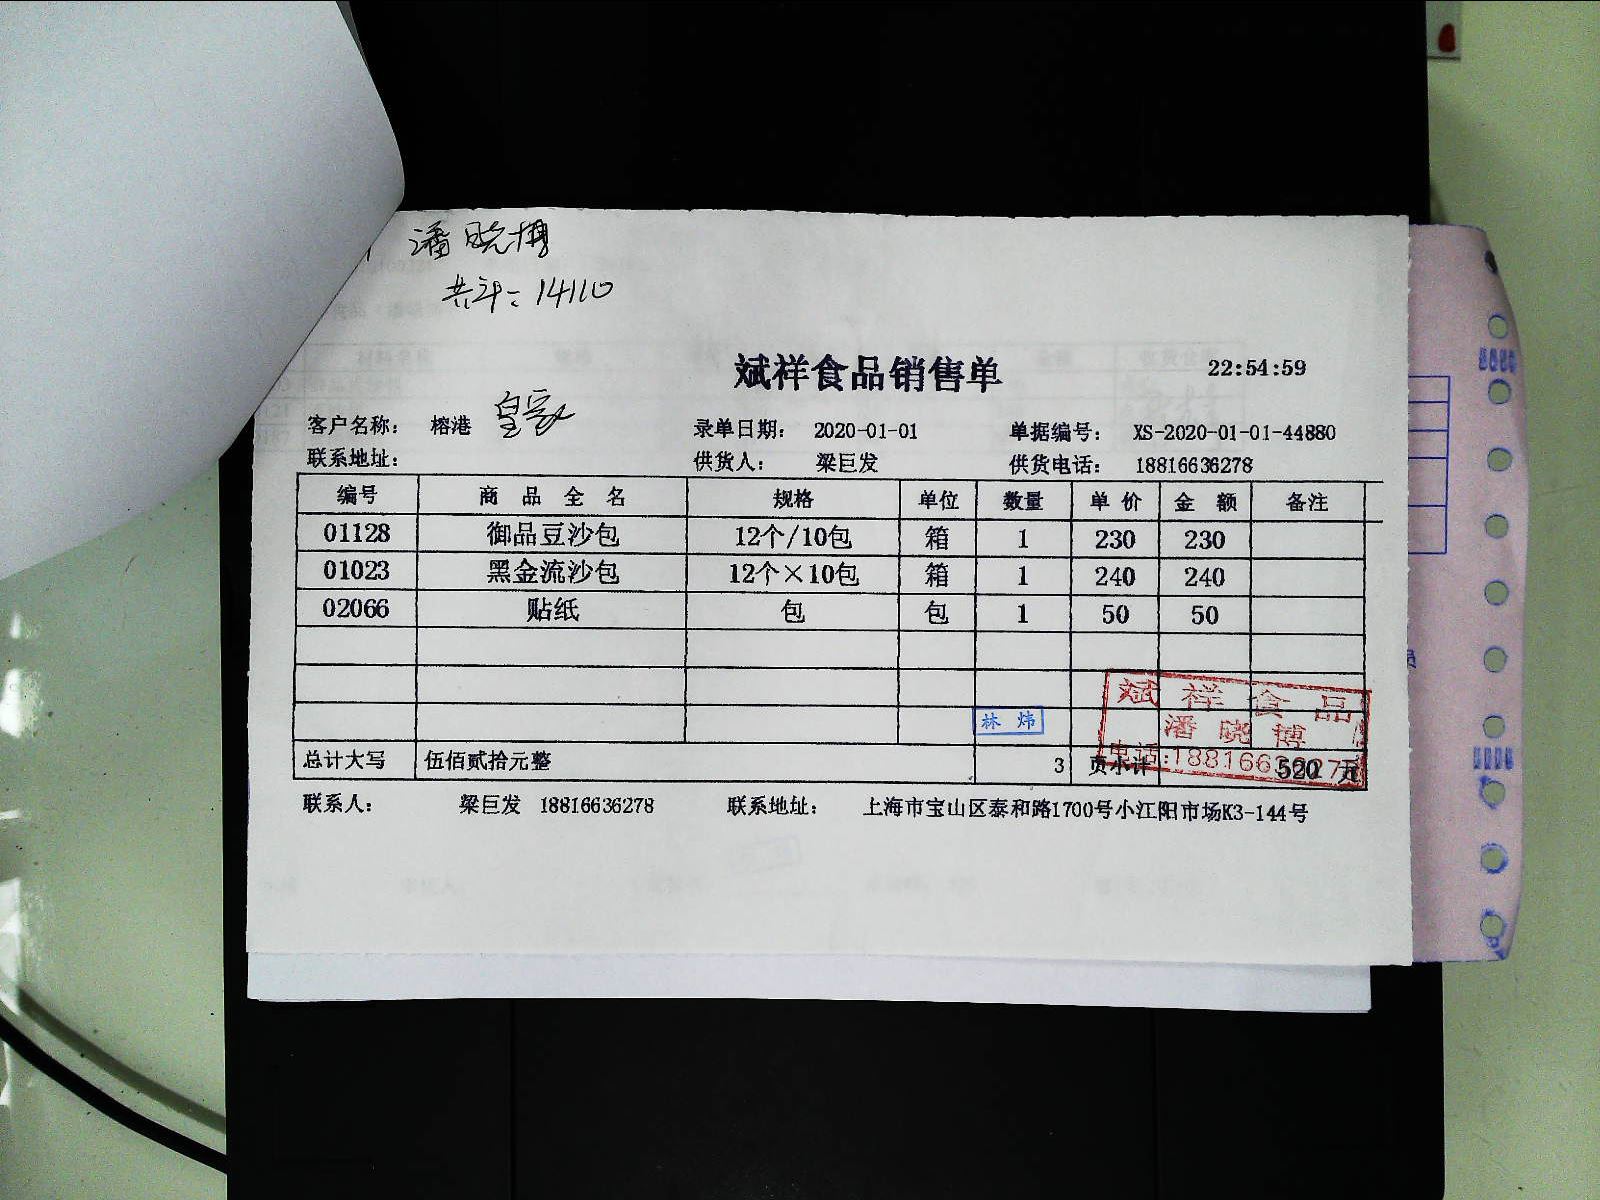 潘晓博
共计：14110
斌祥食品销售单 22:54:59
客户名称： 榕港 皇家 录单日期： 2020-01-01 单据编号： XS-2020-01-01-44880
联系地址： 供货人： 梁巨发 供货电话： 18816636278
编号 商品全名 规格 单位 数量 单价 金额 备注
01128 御品豆沙包 12个/10包 箱 1 230 230
01023 黑金流沙包 12个×10包 箱 1 240 240
02066 贴纸 包 包 1 50 50
斌祥食品
林炜 潘晓博
电话:18816636278
总计大写 伍佰贰拾元整 3 页小计 520 元
联系人： 梁巨发 18816636278 联系地址： 上海市宝山区泰和路1700号小江阳市场K3-144号